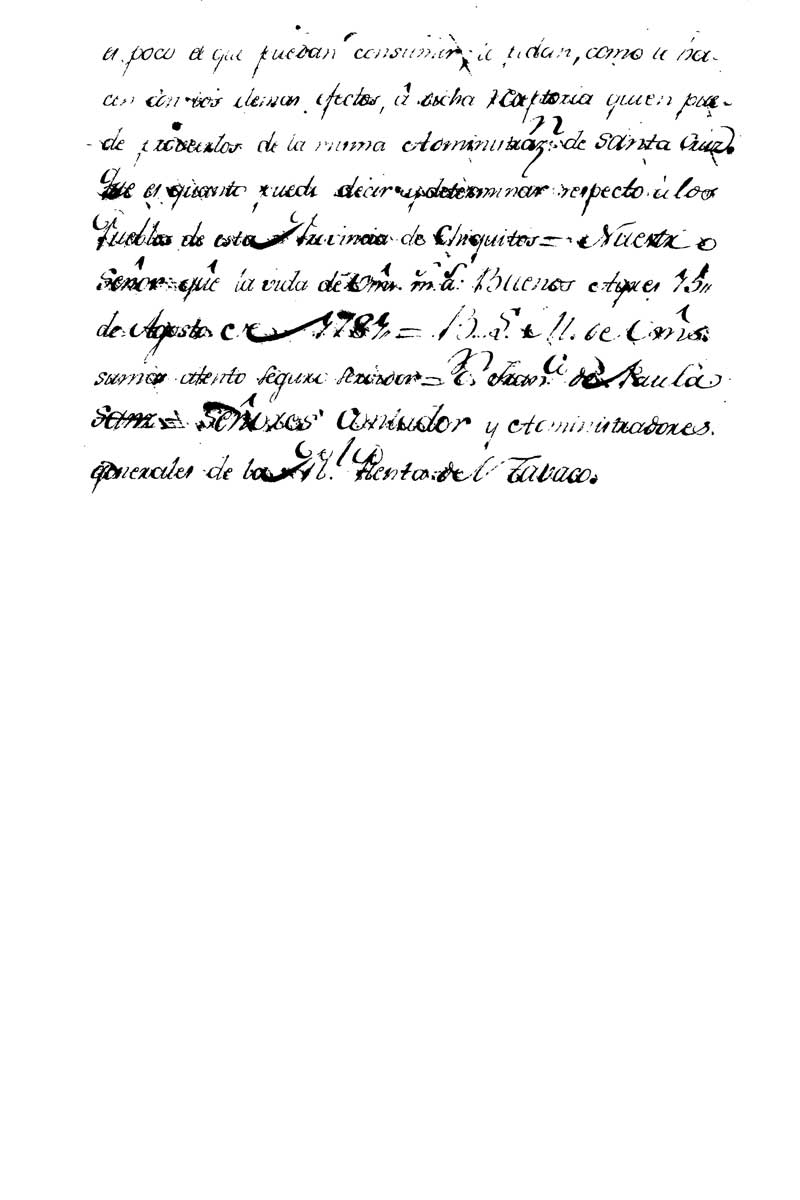 el poco el que puedan consumir, le pidan, como le ha-
cen con los demas efectos, â dicha Receptoria quien pue-
de proveerlos de la misma Administraz.n de Santa Cruz.
Que es quanto puedo decir y determinar respecto â los
Pueblos de esta Provincia de Chiquitos = Nuestro
Señor gûe la vida de Vm̂s. m.s a.s Buenos Ayres 15,,
de Agosto de 1787,, = B. L. M. de Vm̂s.
su mas atento seguro servidor = D.n Fran.co de Paula
Sanz = Señores Contador y Administradores
generales de la R.l Renta del Tabaco.